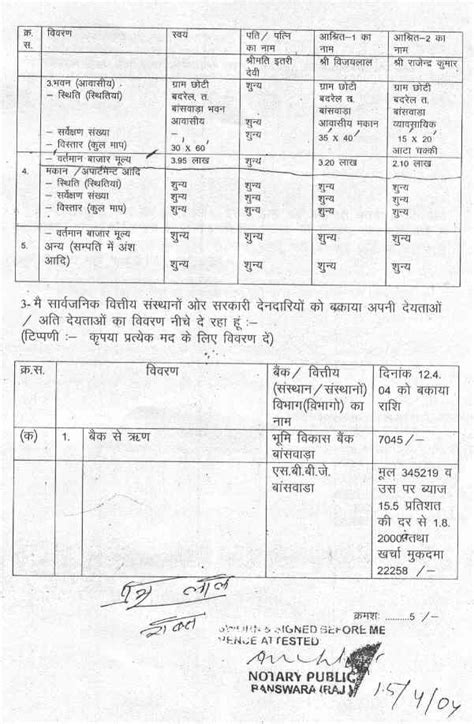 क्र. विवरण स्वयं पति / पत्नि आश्रित–1 का आश्रित–2 का
स. का नाम नाम नाम
श्रीमति इतरी श्री विजयलाल श्री राजेन्द्र कुमार
देवी
3.भवन (आवासीय) ग्राम छोटी शून्य ग्राम छोटी ग्राम छोटी
– स्थिति (स्थितियां) बदरेल त. शून्य बदरेल त. बदरेल त.
बांसवाड़ा भवन बांसवाड़ा बांसवाड़ा
आवासीय शून्य आवासीय मकान व्यावसायिक
– सर्वेक्षण संख्या – शून्य 35 x 40 15 x 20
– विस्तार (कुल माप) 30 x 60 आटा चक्की
– वर्तमान बाजार मूल्य 3.95 लाख शून्य 3.20 लाख 2.10 लाख
4. मकान / अपार्टमेन्ट आदि
– स्थिति (स्थितियां) शून्य शून्य शून्य शून्य
– सर्वेक्षण संख्या शून्य शून्य शून्य शून्य
– विस्तार (कुल माप) शून्य शून्य शून्य शून्य
– वर्तमान बाजार मूल्य शून्य शून्य शून्य शून्य
5. अन्य (सम्पति में अंश
आदि) शून्य शून्य शून्य शून्य
3- मै सार्वजनिक वित्तीय संस्थानों ओर सरकारी देनदारियों को बकाया अपनी देयताओं
/ अति देयताओं का विवरण नीचे दे रहा हूं :–
(टिप्पणी :– कृपया प्रत्येक मद के लिए विवरण दें)
क्र.स. विवरण बैंक / वित्तीय दिनांक 12.4.
(संस्थान / संस्थानों) 04 को बकाया
विभाग(विभागों) का राशि
नाम
(क) 1. बैक से ऋण भूमि विकास बैंक 7045 /–
बांसवाड़ा
एस.बी.बी.जे. मूल 345219 व
बांसवाड़ा उस पर ब्याज
15.5 प्रतिशत
की दर से 1.8.
2000 तथा
खर्चा मुकदमा
22258 /–
लाल
क्रमशः ........5 /–
SIGNED BEFORE ME
ATTESTED
NOTARY PUBLIC
BANSWARA (RAJ.)
15/4/04